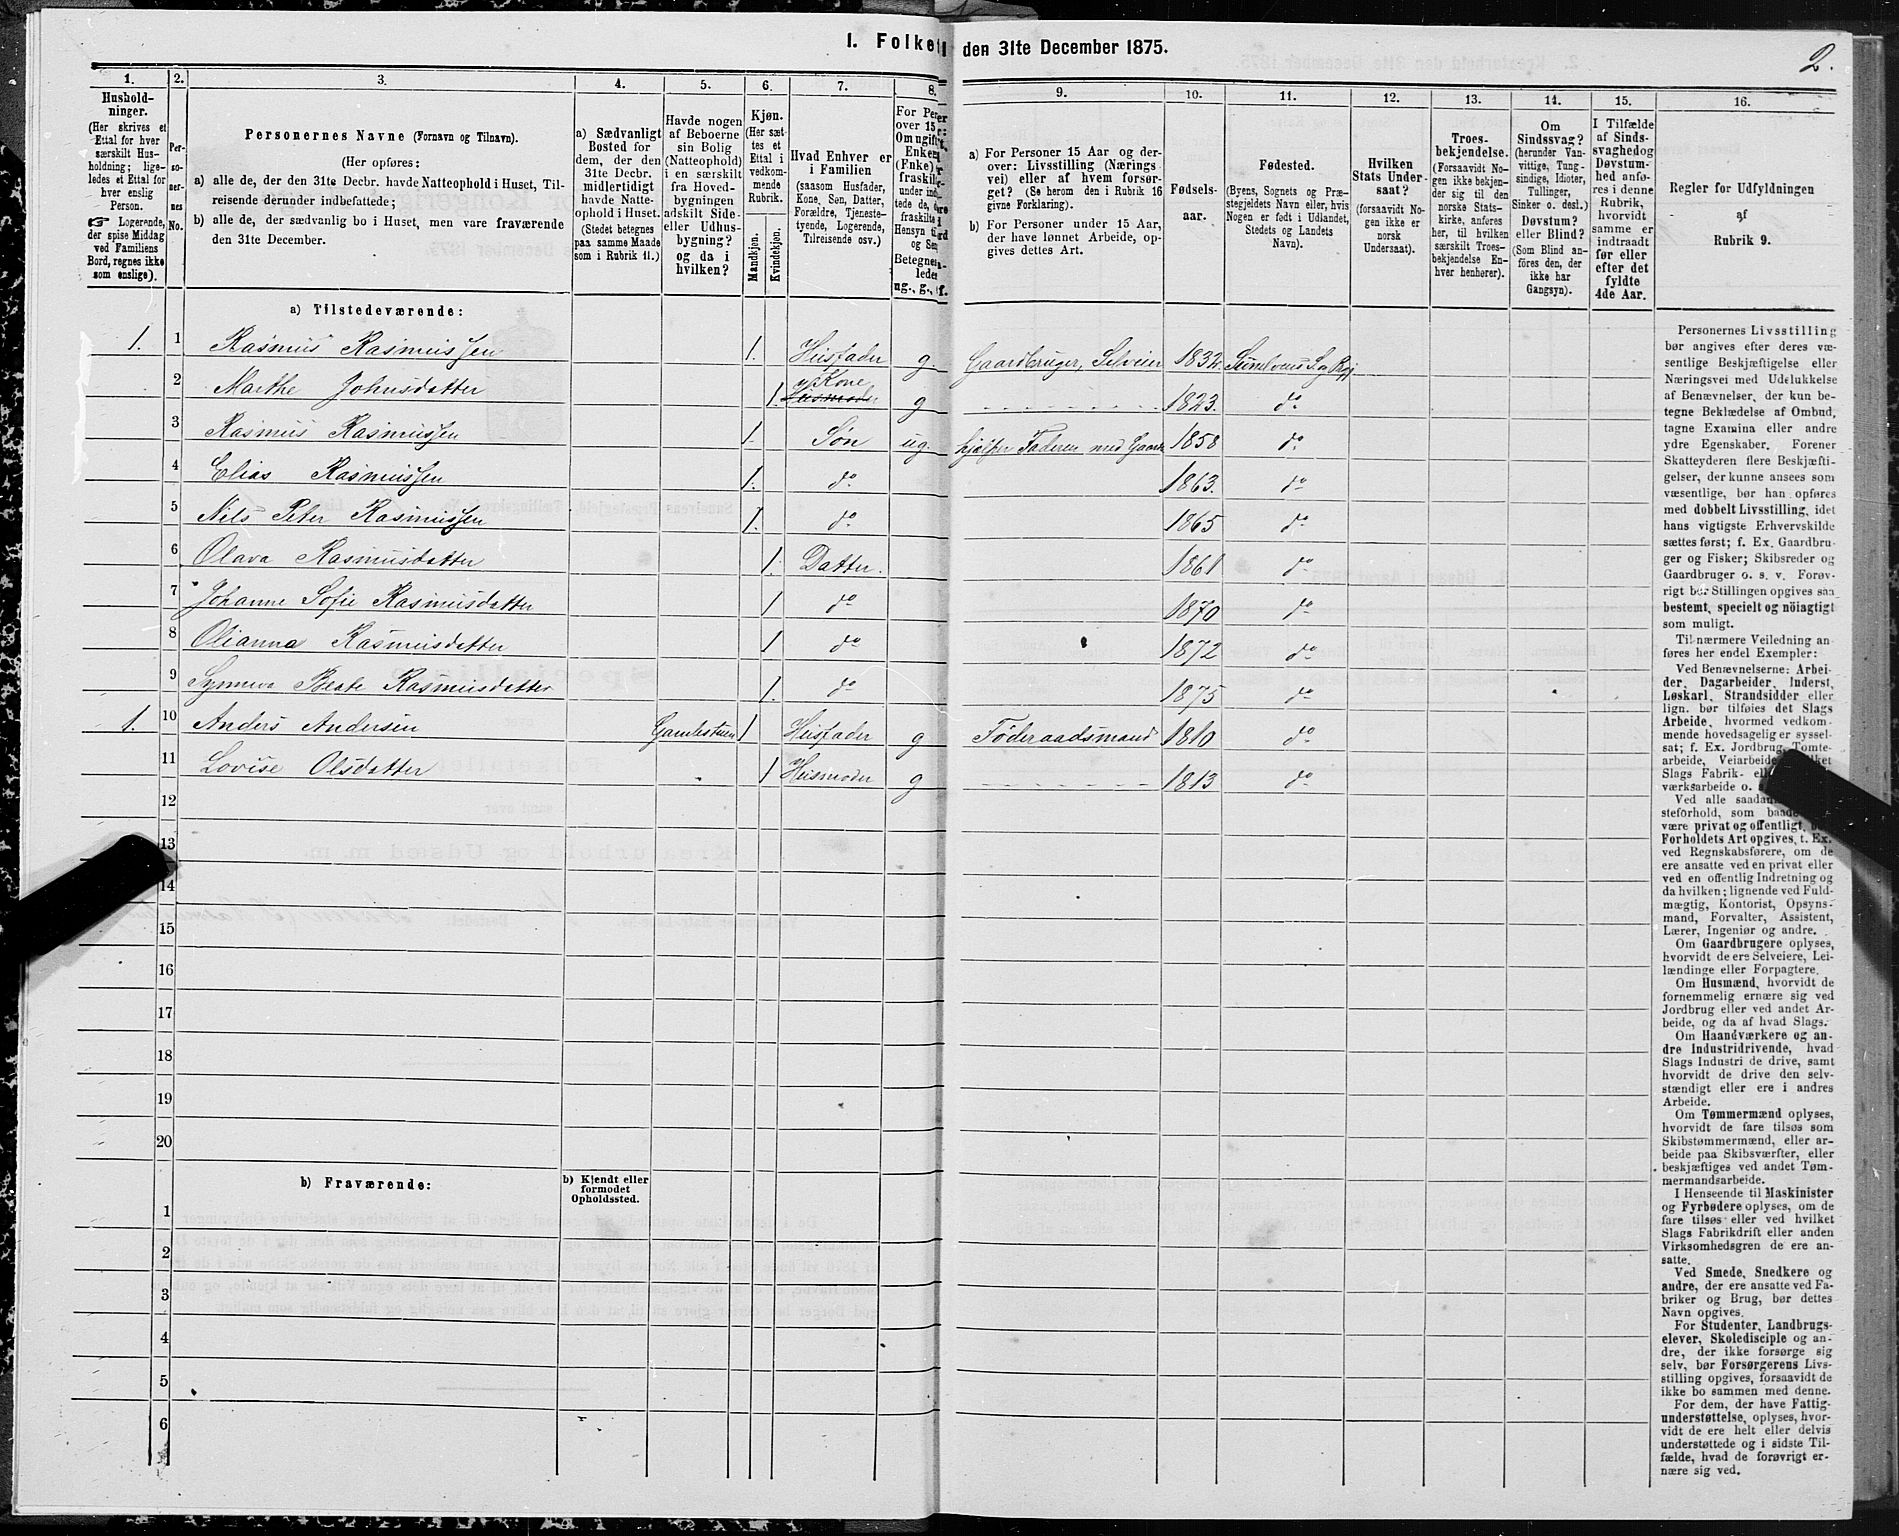 I. Folket
den 31te December 1875.
2.
1.
2.
3.
4.
5.
6.
7.
8.
9.
10.
11.
12.
13.
14.
15.
16.
Hushold-
ninger.
(Her skrives et
Ettal for hver
særskilt Hus-
holdning; lige-
ledes et Ettal for
hver enslig
Person.
Logerende,
der spise Middag
ved Familiens
Bord, regnes ikke
som enslige).
Per-
so-
ner-
nes
No.
Personernes Navne (Fornavn og Tilnavn).
(Her opføres:
a) alle de, der den 31te Decbr. havde Natteophold i Huset, Til-
reisende derunder indbefattede;
b) alle de, der sædvanlig bo i Huset, men vare fraværende
den 31te December.
a) Sædvanligt
Bosted for
dem, der den
31te Decbr.
midlertidigt
havde Natte-
ophold i Huset.
(Stedet betegnes
paa samme Maade
som i Rubrik 11.)
Havde nogen
af Beboerne
sin Bolig
(Natteophold)
i en særskilt
fra Hoved-
bygningen
adskilt Side-
eller Udhus-
bygning?
og da i
hvilken?
Kjøn.
(Her sæt-
tes et
Ettal i
vedkom-
mende
Rubrik.
Mandkjøn.
Kvindekjøn.
Hvad Enhver er
i Familien
(saasom Husfader,
Kone, Søn, Datter,
Forældre, Tjeneste-
tyende, Logerende,
Tilreisende osv.)
a) For Personer 15 Aar og der-
over: Livsstilling (Nærings
vei) eller af hvem forsør-
get? (Se herom den i Rubrik 16
givne Forklaring).
b) For Personer under 15 Aar,
der have lønnet Arbeide, op-
gives dettes Art.
Fødsels-
aar.
Fødested.
(Byens, Sognets og Præ-
stegjeldets Navn, eller, hvis
Nogen er født i Udlandet,
Stedets og Landets
Navn).
Hvilken
Stats Under-
saat?
(forsaavidt No-
gen ikke er
norsk
Undersaat).
Troes-
bekjendelse.
(Forsaavidt No-
gen ikke bekjen-
der sig til den
norske Stats-
kirke, anføres
her, til hvilken
særskilt Troes-
bekjendelse En-
hver henhører).
Om
Sindssvag?
(herunder Van-
vittige, Tung-
sindige, Idioter,
Tullinger,
Sinker o. desl.)
Døvstum?
eller Blind?
(Som Blind an-
føres den, der
ikke har
Gangsyn).
I Tilfælde
af Sinds-
svaghedog
Døvstum-
hed anfø-
res i denne
Rubrik,
hvorvidt
samme er
indtraadt
før eller
efter det
fyldte
4de Aar.
Regler for Udfyldningen
af
Rubrik 9.
a) Tilstedeværende:
1. 1 Rasmus Rasmussen 1. Husfader g. Gaardbruger, Selveier 1832.
2 Marthe Johnsdatter 1. Kone Husmoder g 1823. do
3 Rasmus Rasmussen 1 Søn ug. hjælper Faderen med Gaard 1858 do
4 Elias Rasmussen 1. do 1863. do
5 Nils Peter Rasmussen 1. do 1865 do
6 Olava Rasmusdatter 1. Datter. 1861 do
7 Johanne Sofie Rasmusdatter 1 do 1870 do
8 Olianna Rasmusdatter 1 do 1872 do
9 Synneva Beate Rasmusdatter 1. do 1875 do
1. 10 Anders Andersen Gamlestuen 1 Husfader g Føderaadsmand 1810 do
11 Lovise Olsdatter 1 Husmoder g 1813 do
12
13
14
15
16
17
18
19
20
b) Fraværende:
b) Kjendt eller
formodet
Opholdssted.
1
2
3
4
5
6
Personernes Livsstilling
bør angives efter deres væ-
sentlige Beskjæftigelse eller
Næringsvei med Udelukkelse
af Benævnelser, der kun be-
tegne Beklædelse af Ombud,
tagne Examina eller andre
ydre Egenskaber. Forener
Skatteyderen flere Beskjæfti-
gelser, der kunne ansees som
væsentlige, bør han opføres
med dobbelt Livsstilling, idet
hans vigtigste Erhvervskilde
sættes først; f. Ex. Gaardbru-
ger og Fisker; Skibsreder og
Gaardbruger o. s. v. Forøv-
rigt bør Stillingen opgives saa
bestemt, specielt og nöiagtigt
som muligt.
Til nærmere Veiledning an-
føres her endel Exempler:
Ved Benævnelserne: Arbei-
der, Dagarbeider, Inderst,
Løskarl, Strandsidder eller
lign. bør tilføies det Slags
Arbeide, hvormed vedkom-
mende hovedsagelig er syssel-
sat; f. Ex. Jordbrug, Tomte-
arbeide, Veiarbeide,
Slags Fabrik-
værksarbeide o.
Ved alle
steforhold, som
være privat og offentligt,
Forholdets Art opgives, f. Ex.
ved Regnskabsførere, om de
ere ansatte ved en privat eller
ved en offentlig Indretning og
da hvilken; lignende ved Fuld-
mægtig, Kontorist, Opsyns-
mand, Forvalter, Assistent,
Lærer, Ingeniør og andre.
Om Gaardbrugere oplyses,
hvorvidt de ere Selveiere, Lei-
lændinge eller Forpagtere.
Om Husmænd, hvorvidt de
fornemmelig ernære sig ved
Jordbrug eller ved andet Ar-
beide, og da af hvad Slags.
Om Haandværkere og an-
dre Industridrivende, hvad
Slags Industri de drive, samt
hvorvidt de drive den selv-
stændigt eller ere i andres
Arbeide.
Om Tømmermænd oplyses,
hvorvidt de fare tilsøs som
Skibstømmermænd, eller ar-
beide paa Skibsværfter, eller
beskjæftiges ved andet Tøm-
mermandsarbeide.
I Henseende til Maskinister
og Fyrbødere oplyses, om de
fare tilsøs eller ved hvilket
Slags Fabrikdrift eller anden
Virksomhedsgren de ere an-
satte.
Ved Smede, Snedkere og
andre, der ere ansatte ved Fa-
briker og Brug, bør dettes
Navn opgives.
For Studenter, Landbrugs-
elever, Skoledisciple og an-
dre, der ikke forsørge sig
selv, bør Forsørgerens Livs-
stilling opgives, forsaavidt de
ikke bo sammen med denne.
For dem, der have Fattig-
understøttelse, oplyses, hvor-
vidt de ere helt eller delvis
understøttede og i sidste Til-
fælde, hvad de forøvrigt er-
nære sig ved.